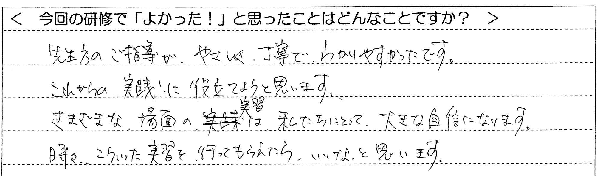 < 今回の研修で「よかった！」と思ったことはどんなことですか？ >
先生方のご指導が、やさしく、丁寧で、わかりやすかったです。
これからの実践に役立てようと思います。
さまざまな、場面の、実習は私たちにとって、大きな自信になります。
時々、こういった実習を行ってもらえたら、いいかなと思います。